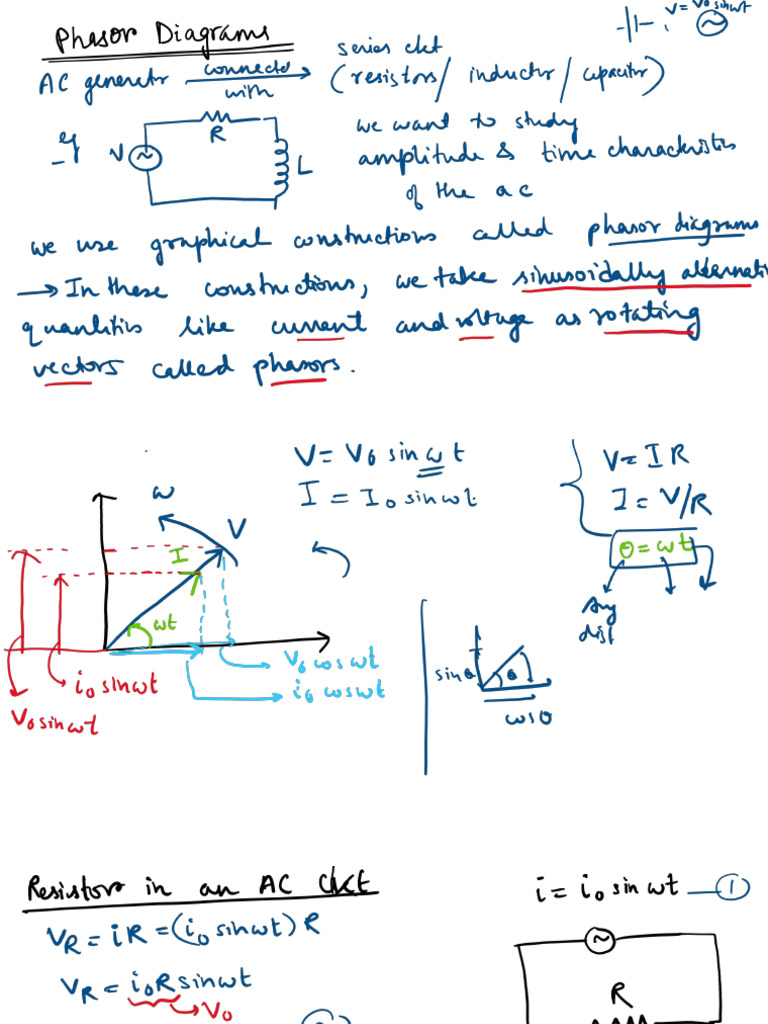 V = V₀ sin ωt
Phasor Diagrams
AC generator connected with series ckt
(resistors / inductor / capacitor)
eg V R L
we want to study
amplitude & time characteristics
of the ac
we use graphical constructions called phasor diagrams
→ In these constructions, we take sinusoidally alternati
quantities like current and voltage as rotating
vectors called phasors.
V = V₀ sin ω t
I = I₀ sin ωt
V = I R
I = V/R
θ = ωt
Ang
dist
ω
V
I
ωt
V₀ cos ωt
i₀ cos ωt
i₀ sin ωt
V₀ sin ωt
sin θ
θ
cos θ
Resistor in an AC ckt
i = i₀ sin ωt — ①
V_R = iR = (i₀ sin ωt) R
V_R = i₀R sin ωt
→ V₀
R